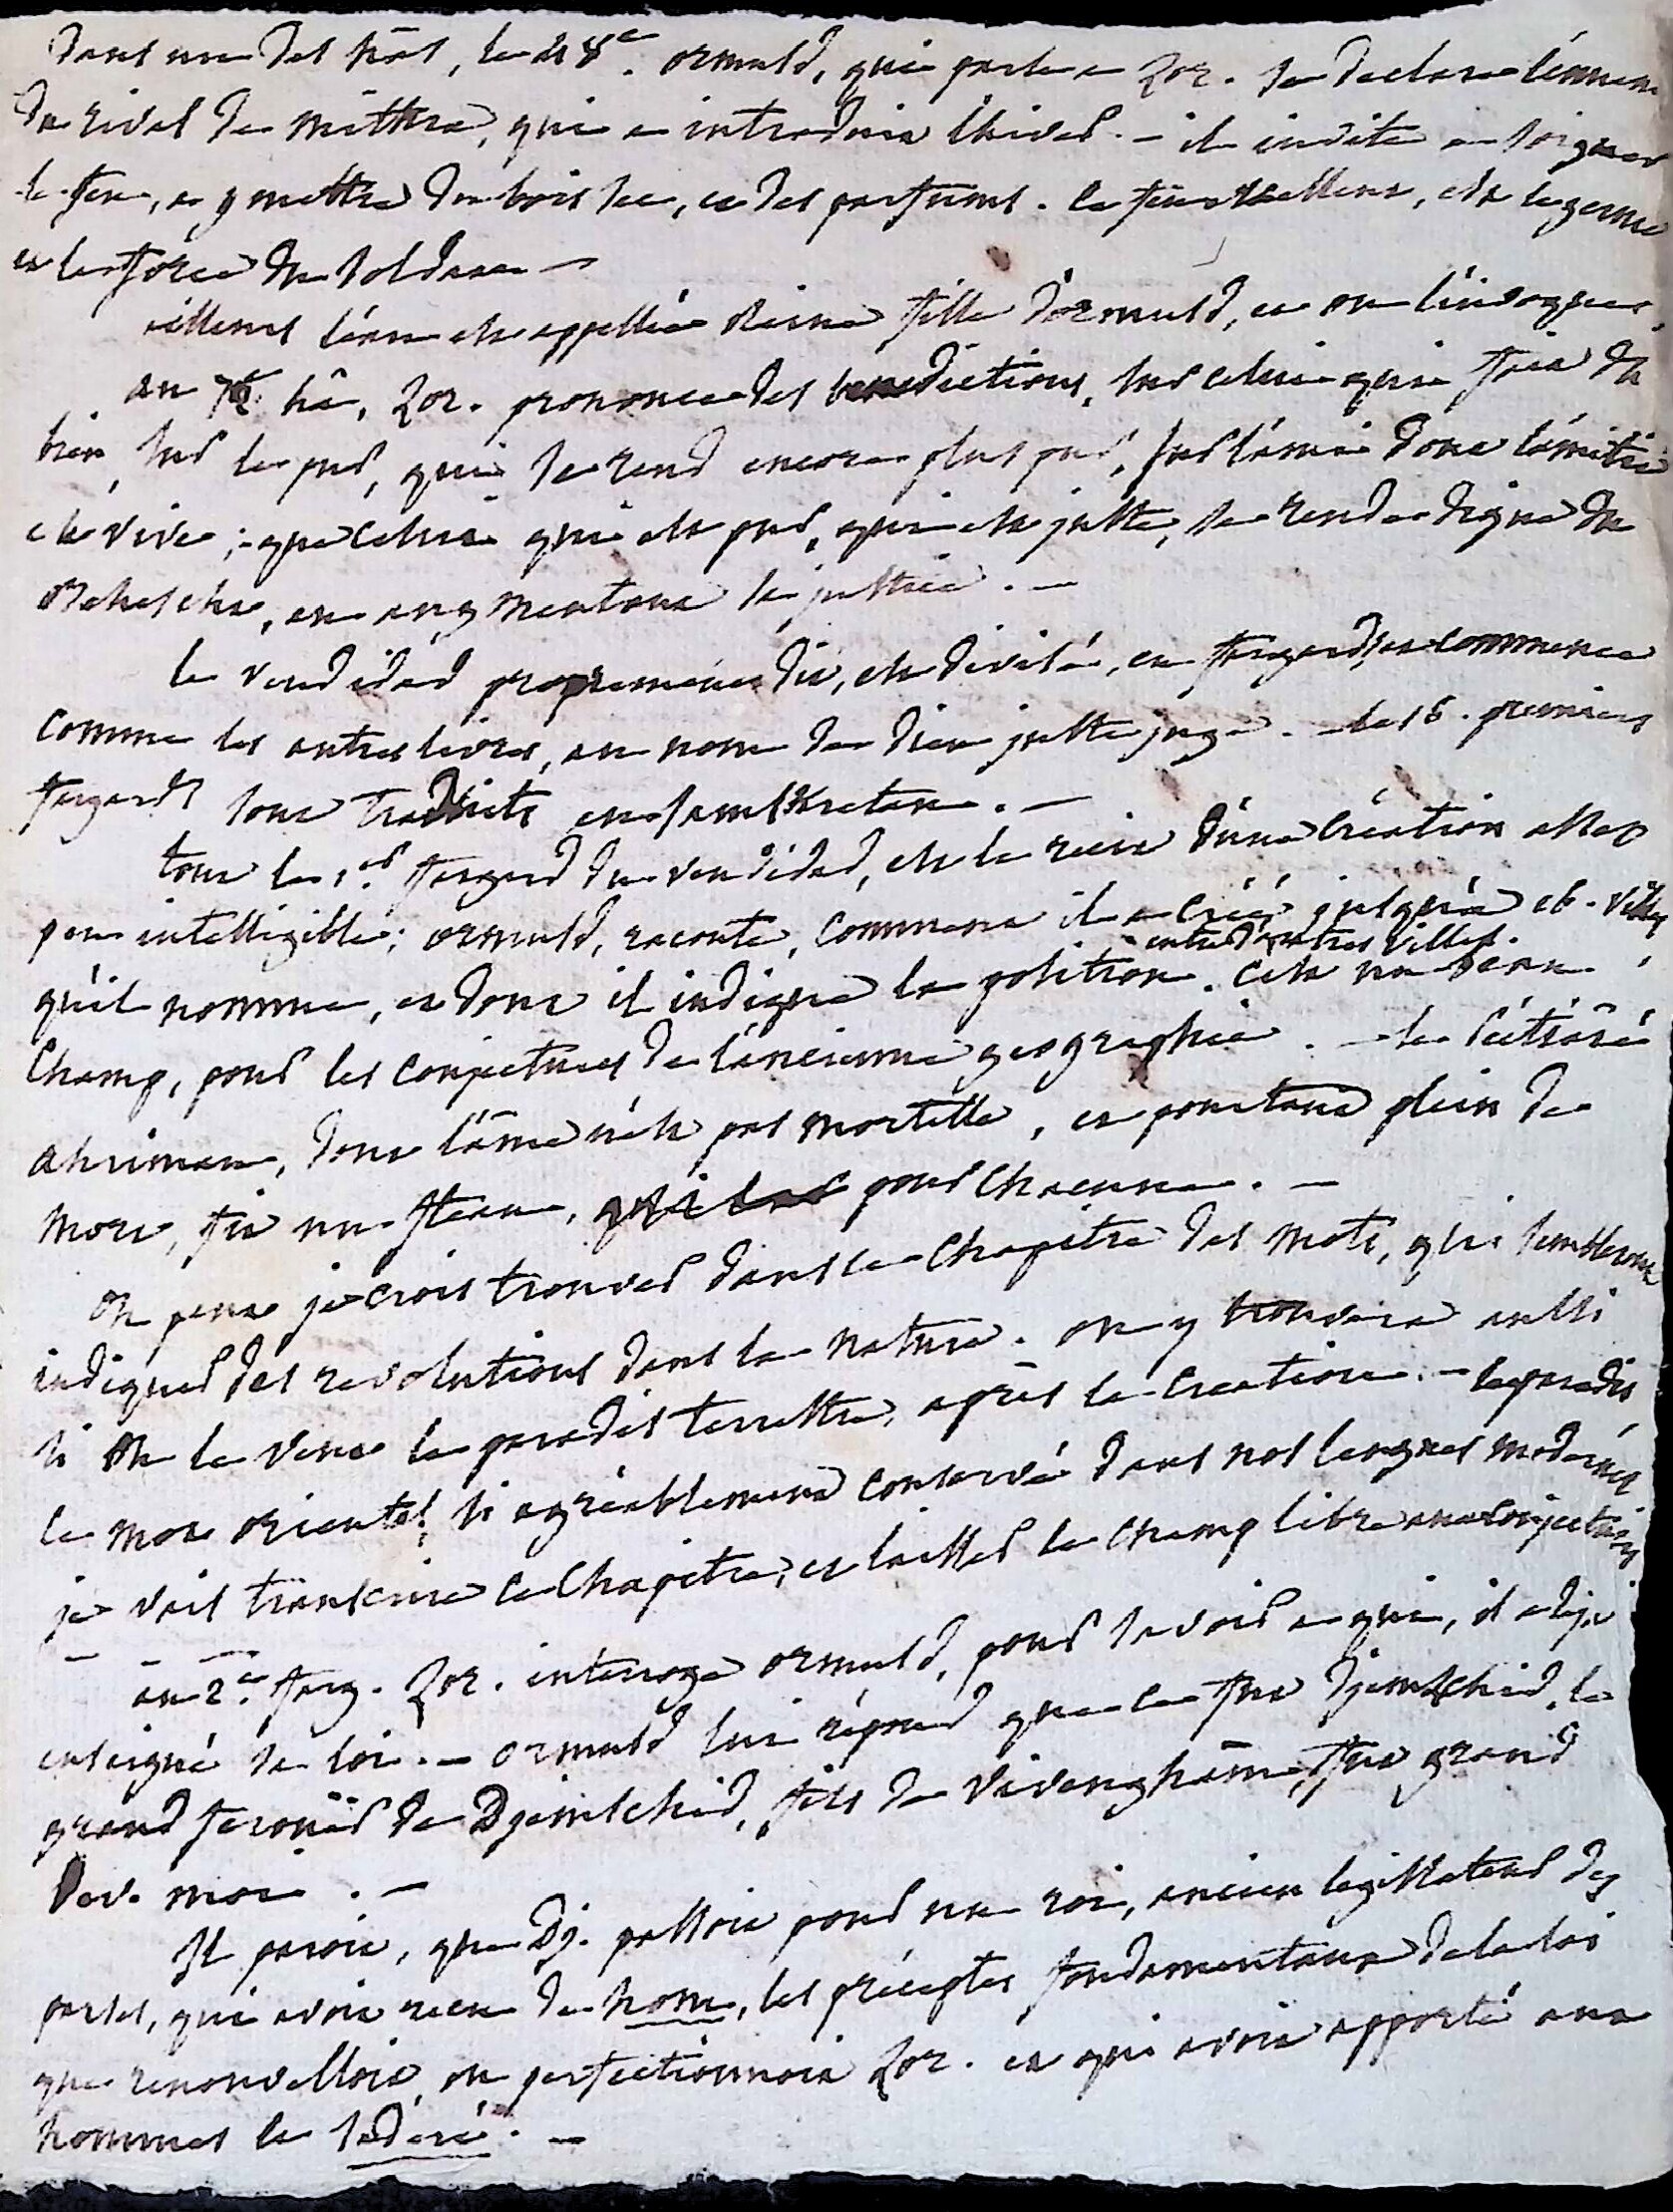 dans un des hâs, le 48e. ormusd, qui parle a Zor. se declare l'ennemi
du rival de mithra, qui a introduit l'hiver. – il invite a soigner
le feu, a y mettre du bois sec, et des parfums. ce feu est le germe
et la force du soldat –
ailleurs l'eau est appellée Reine fille d'ormusd, et on l'invoque.
au hâ, Zor. prononce des benedictions, sur celui qui fait du
bien, sur le pur, qui se rend encore plus pur, sur l'ami dont l'amitié
est vive ; que celui qui est pur, qui est juste, se rende digne du
Behescht, en augmentant sa justice. –
le vendidad proprement dit, est divisé, en fargards, et commence
comme les autres livres, au nom de dieu juste juge. – les 6. premiers
fargards sont traduits en samskretan. –
tout le 1er. fargard du vendidad, est le recit d'une création assez
peu intelligible ; ormusd, raconte, comment il a créé jusqu'à 16. villes
entre d'autres villes.
qu'il nomme, et dont il indique la position. c'est un beau
Champ, pour les conjectures de l'ancienne geographie. – le
ahriman, dont l'âme n'est pas mortelle, et pourtant plein de
mort, fit un fleau, pour chacune. –
on peut je crois trouver dans ce Chapitre des mots, qui sembleront
indiquer des revolutions dans la nature. on y trouvera aussi
si on le veut le paradis terrestre, après la creation. – le paradis,
le mot oriental, si agréablement conservé dans nos langues modernes
je vais transcrire ce Chapitre, et laisser le champ libre aux conjectures
au 2e. farg. Zor. interroge ormusd, pour savoir a qui, il a deja
enseigné sa loi. – ormusd lui répond que ce fut Djemschid, le
grand ferouër de Djemschid, fils de vivenghâm, fut grand
dev. moi. –
Il paroit, que Dj. passoit pour un roi, ancien legislateur des
parses, qui avoit recu de hom, les préceptes fondamentaux de la loi
que renouvelloit, ou perfectionnoit Zor. et qui avoit apporté aux
hommes le sadéré. –